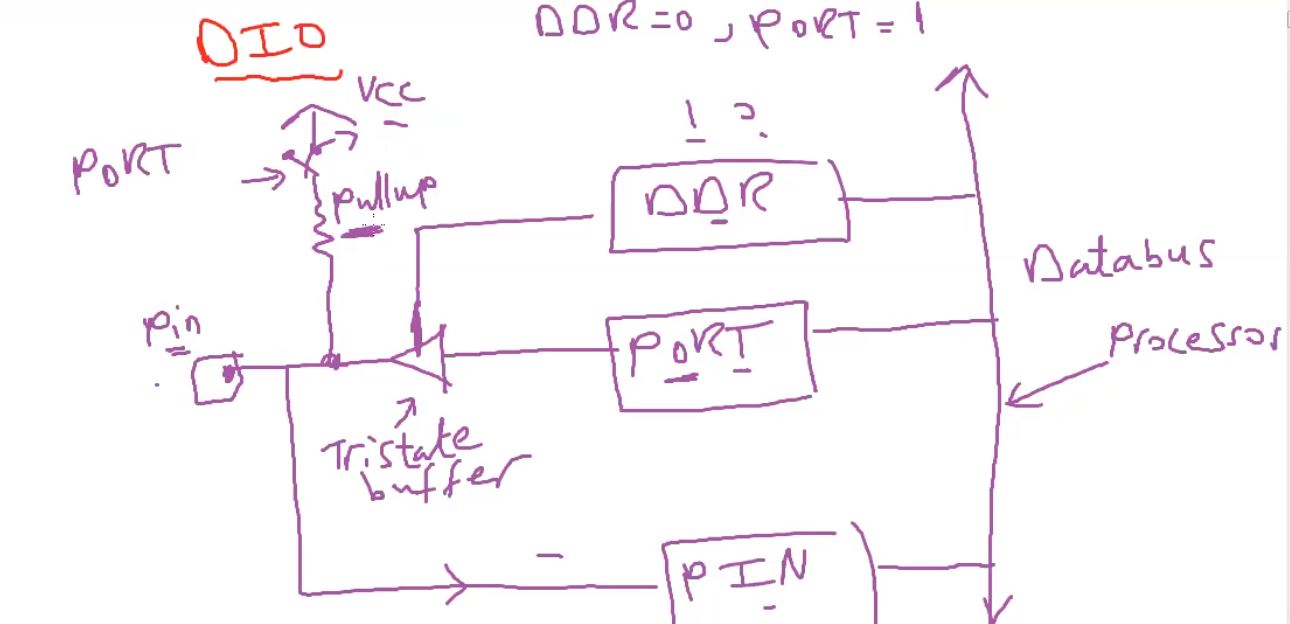 DIO
DDR=0, PORT=1
VCC
PORT
pullup
DDR
Databus
Pin
PORT
Processor
Tristate
buffer
PIN